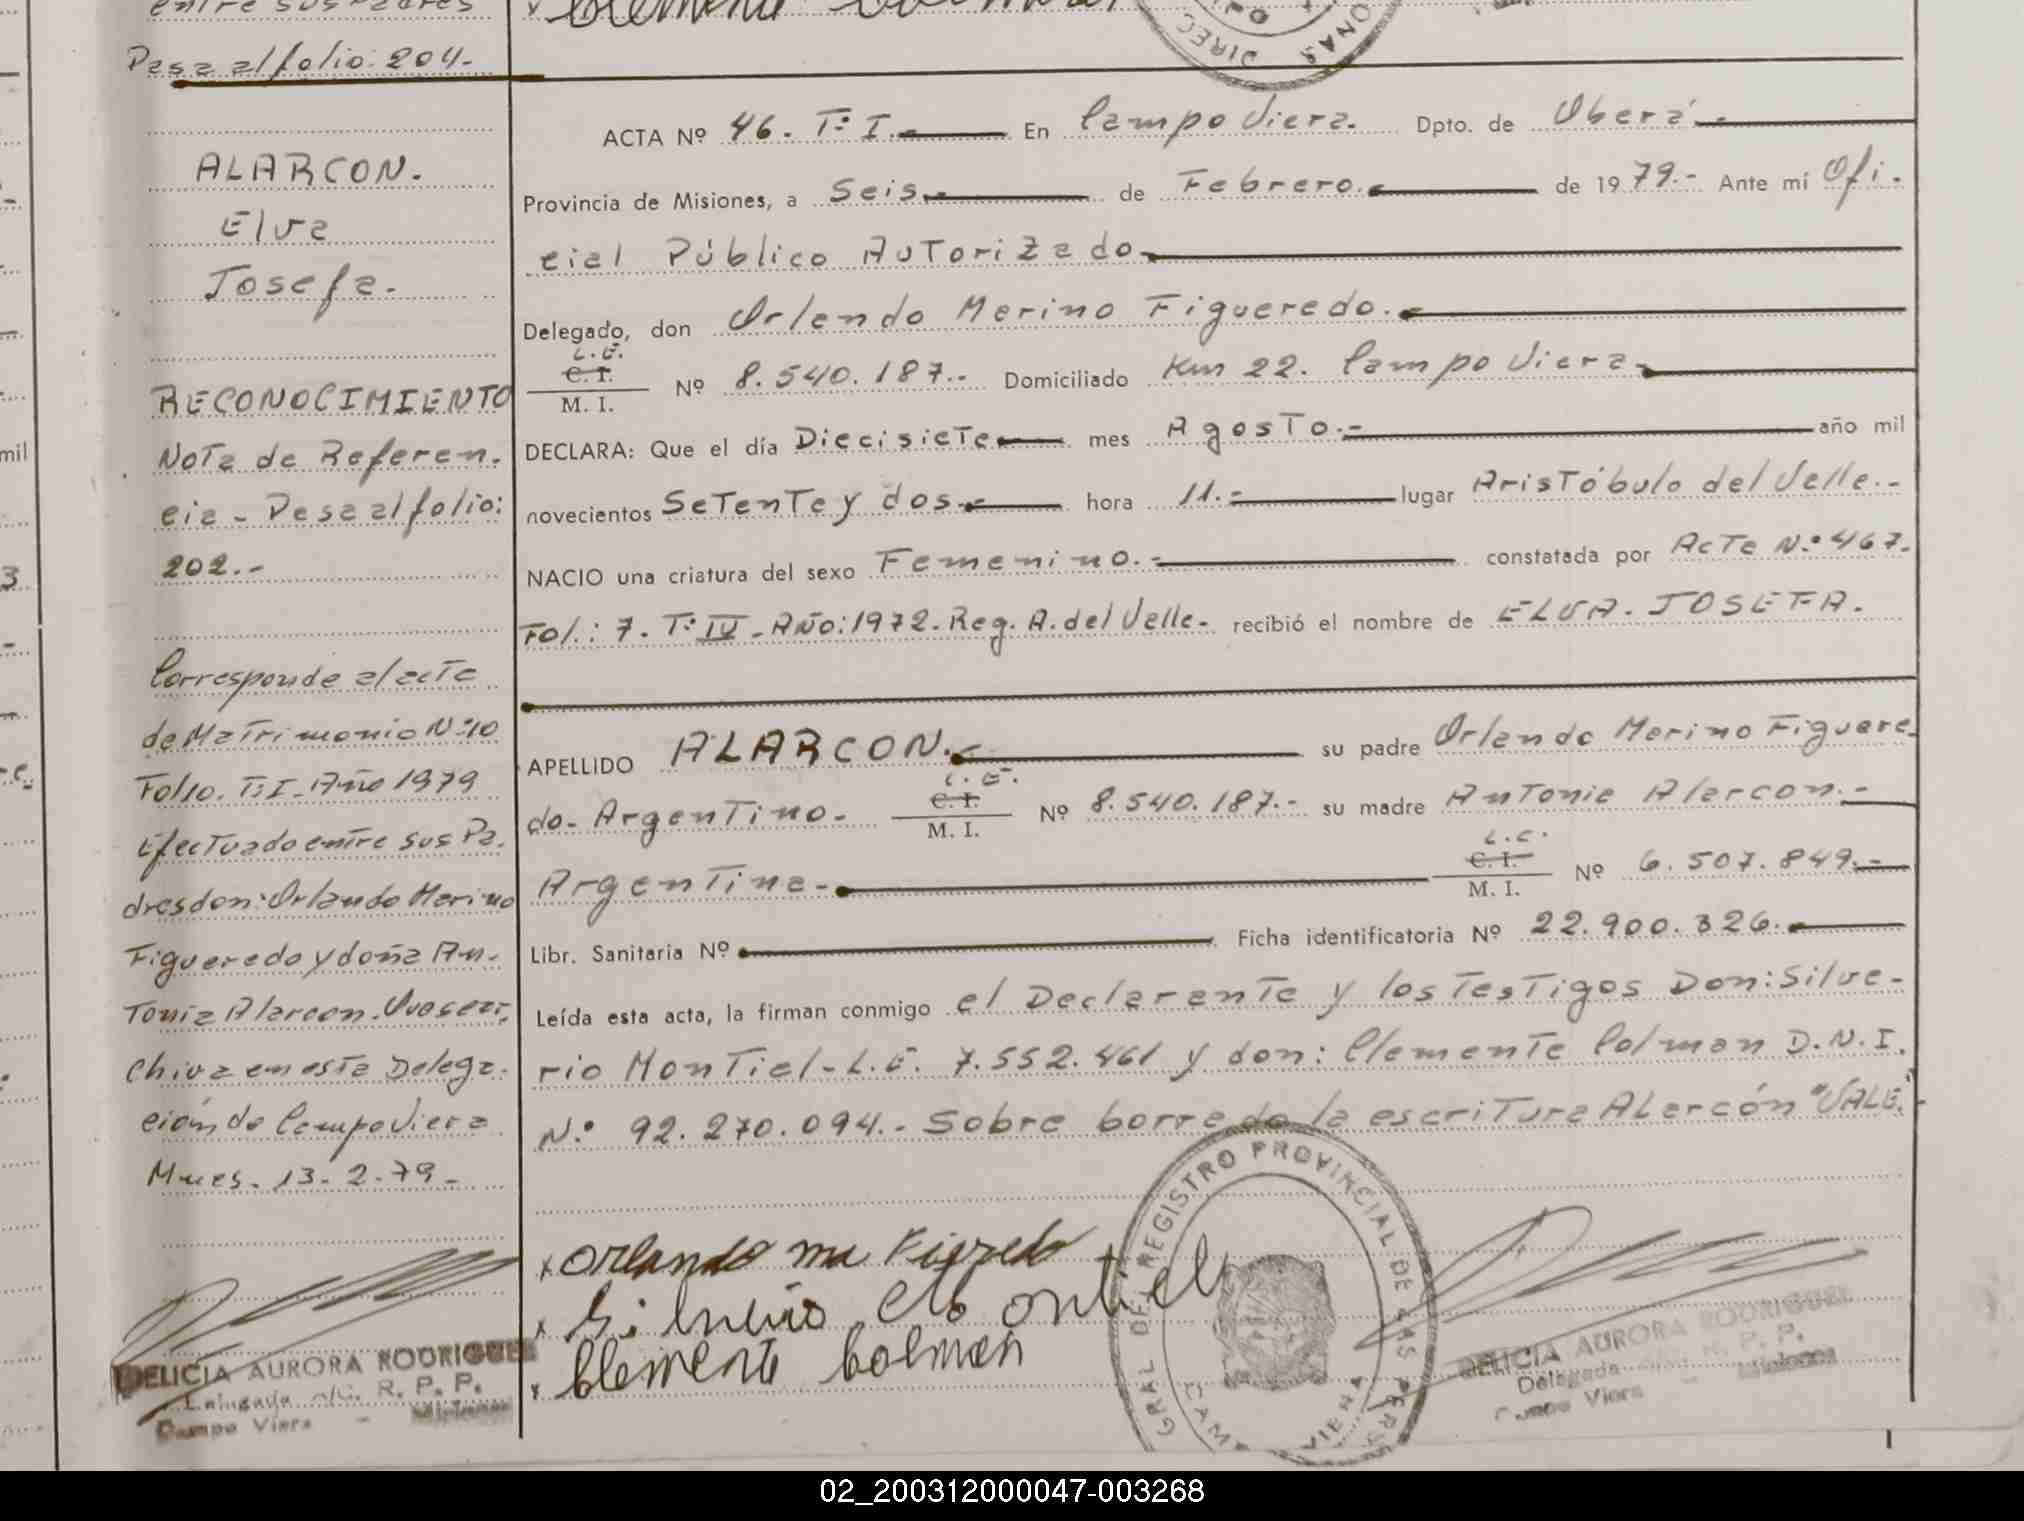 entre sus Padres
Pasa al folio: 204.-
Clemente Colman
DIREC
ONAS
ALARCON.
Elva
Josefa.-
RECONOCIMIENTO
Nota de Referen.
cia - Pasa al folio:
202.-
Corresponde al acta
de Matrimonio Nº:10
Fol 10. Tº:I - Año 1979
Efectuado entre sus Pa.
dres don: Orlando Merino
Figueredo y doña An-
tonia Alarcon.
chiva en esta Delega.
ción de Campo Viera
Mnes. 13-2-79.-
DELICIA AURORA RODRIGUEZ
Delegada R. P. P.
Campo Viera - Misiones
ACTA Nº 46. Tº I.- En Campo Viera. Dpto. de Oberá.-
Provincia de Misiones, a Seis.- de Febrero.- de 1979.- Ante mí Ofi.
cial Público Autorizado.-
Delegado, don Orlando Merino Figueredo.-
L.E.
C. I.
M. I. Nº 8.540.187.- Domiciliado Km 22. Campo Viera.-
DECLARA: Que el día Diecisiete.- mes Agosto.- año mil
novecientos Setenta y dos.- hora 11.- lugar Aristóbulo del Valle.-
NACIO una criatura del sexo Femenino.- constatada por Acta N.º 467.
Fol.: 7. Tº: IV - Año: 1972. Reg. A. del Valle.- recibió el nombre de ELVA. JOSEFA.
APELLIDO ALARCON.- su padre Orlando Merino Figuere-
do- Argentino.-
L.E.
C. I.
M. I. Nº 8.540.187.- su madre Antonia Alarcon.-
Argentina.-
L.C.
C. I.
M. I. Nº 6.507.849.-
Libr. Sanitaria Nº Ficha identificatoria Nº 22.900.326.-
Leída esta acta, la firman conmigo el Declarante y los Testigos Don: Silve-
rio Montiel - L.E. 7.552.461 y don: Clemente Colman D.N.I.
N.º 92.270.094.- Sobre borrado la escritura Alarcón "VALE."
x Orlando ma Figredo
x Silverio Montiel
x Clemente Colman
GRAL DEL REGISTRO PROVINCIAL DE LAS PERS
CAM VIERA
DELICIA AURORA RODRIGUEZ
Delegada R. P. P.
Campo Viera - Misiones
mil
3
02_200312000047-003268